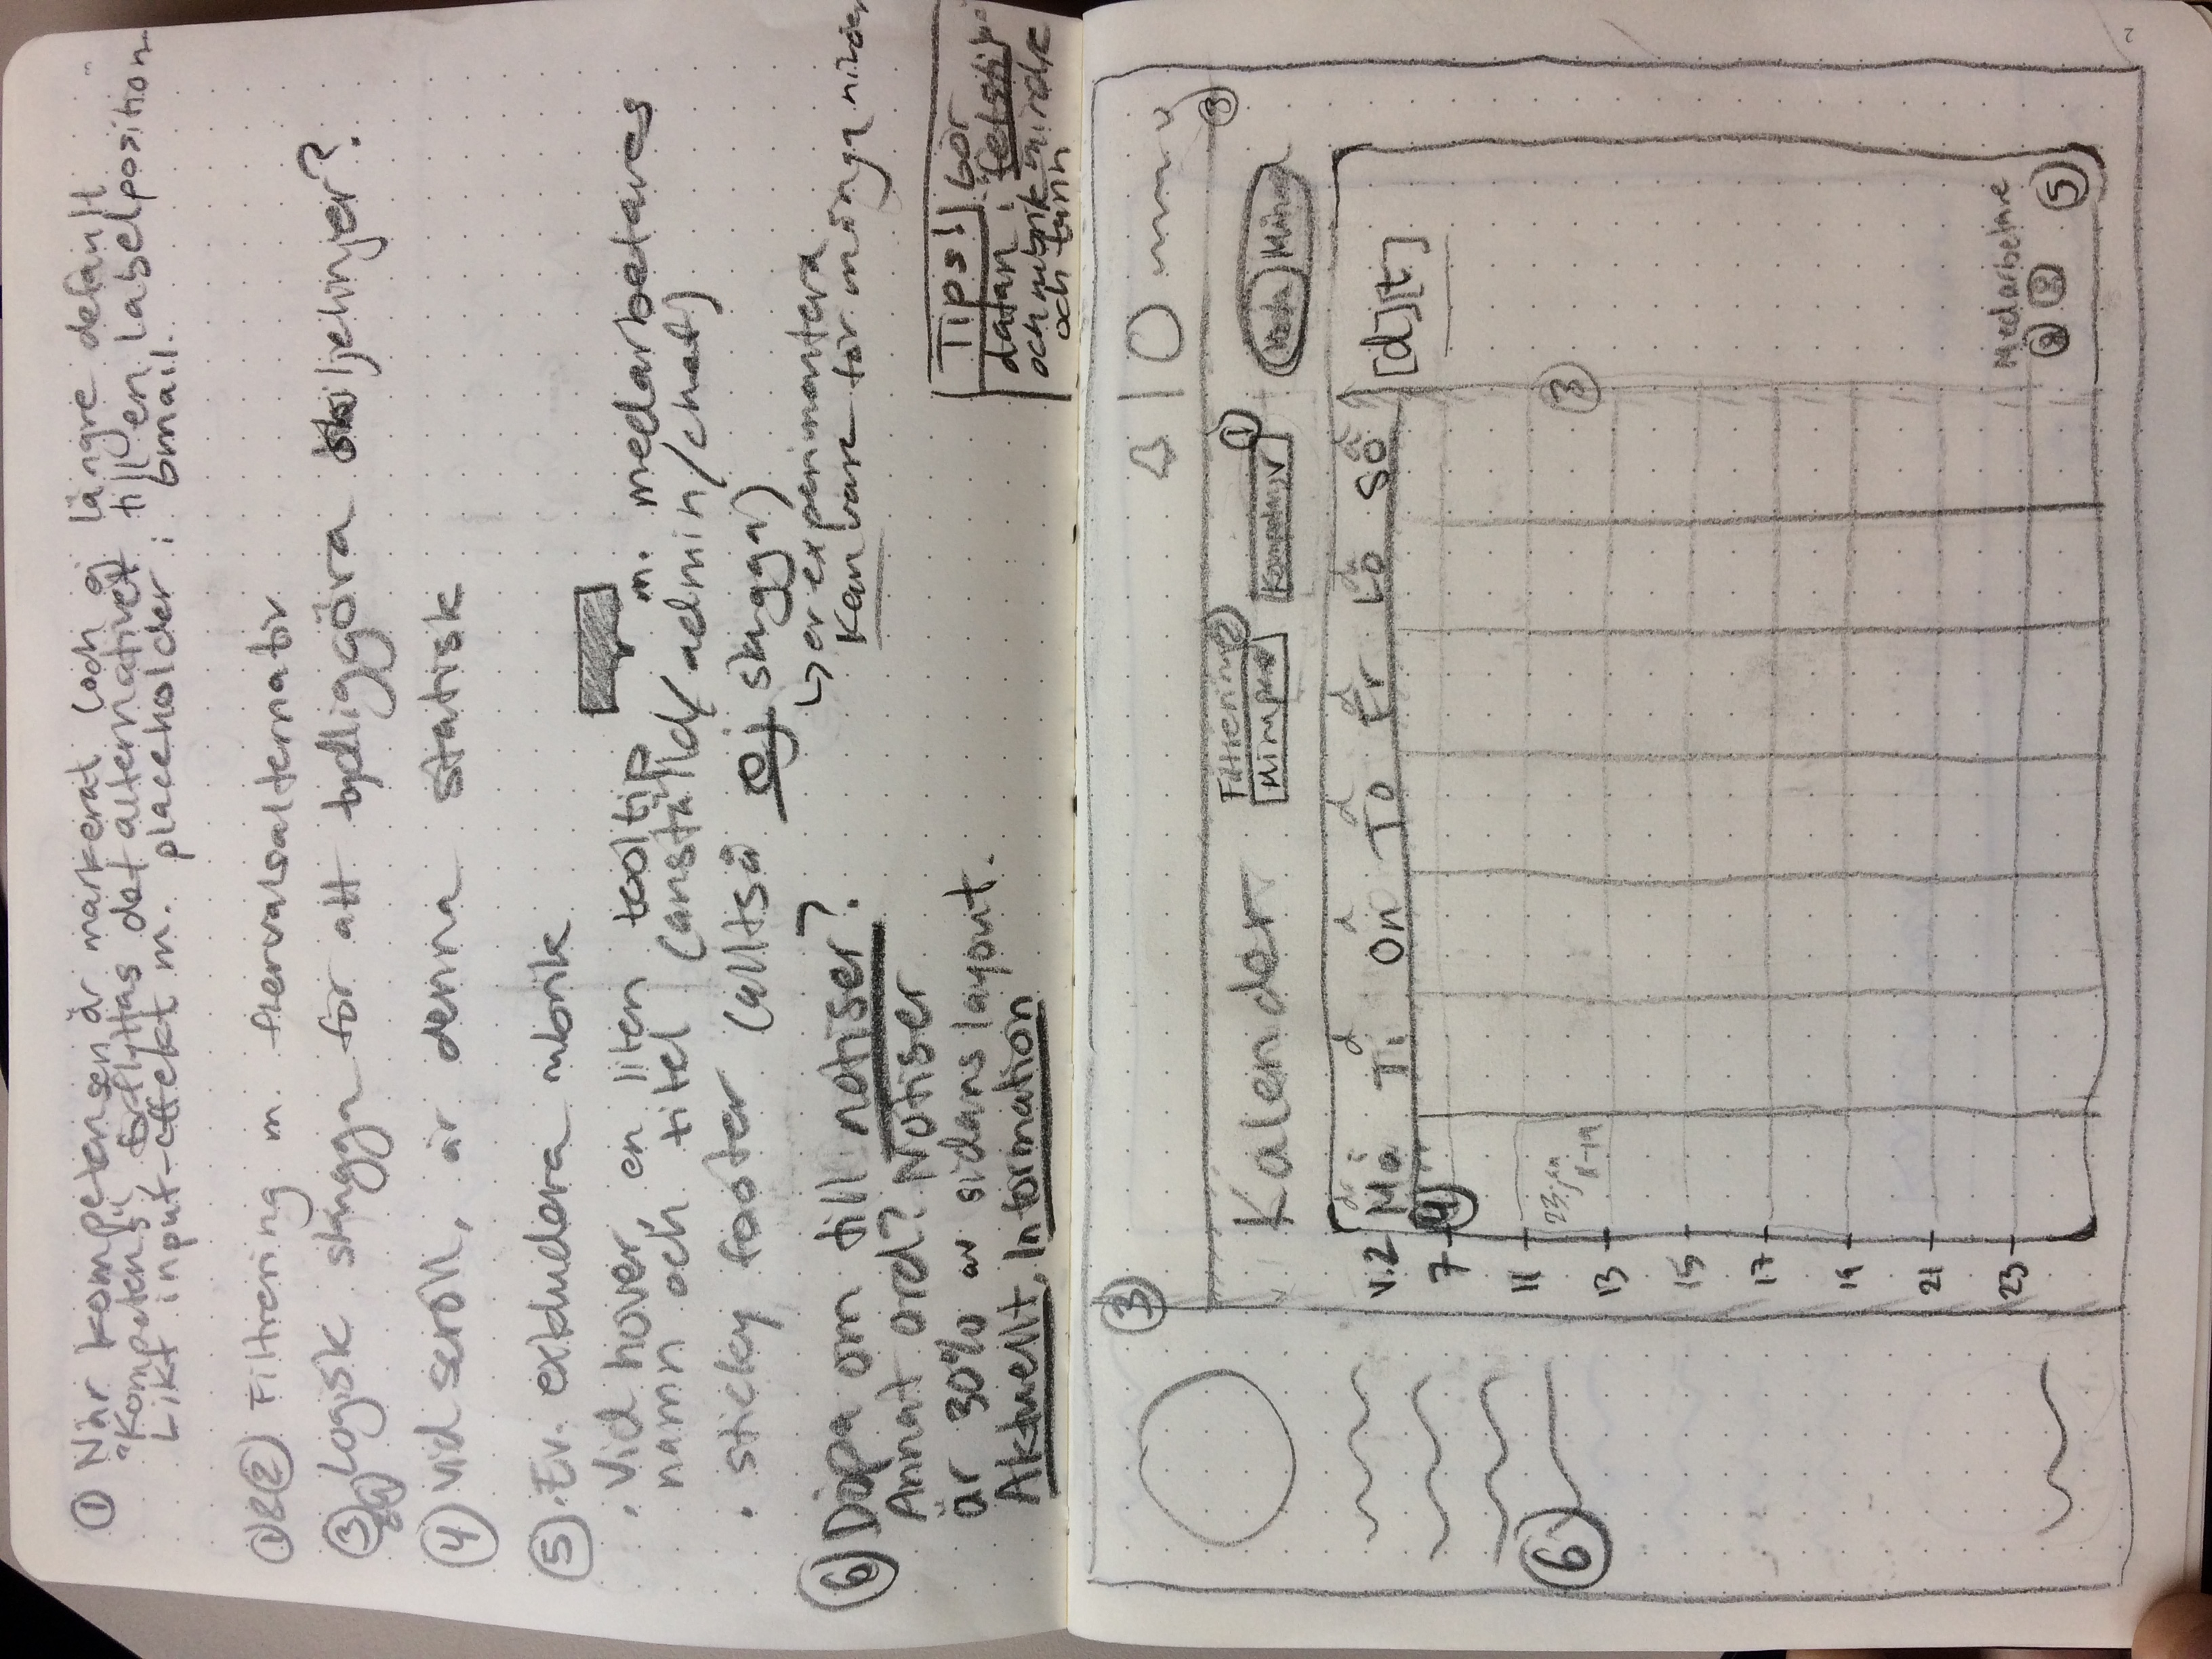 ① När kompetensen är markerat (och ej längre default
"Kompetens", förflyttas det alternativet till en labelposition
Likt input-effekt m. placeholder i Gmail.
① & ② Filtrering m. flervalsalternativ
③ & ④ Logisk skugga för att tydliggöra skiljelinjer?
④ Vid scroll, är denna statisk
⑤ · Ev. exkludera rubrik
· Vid hover, en liten tooltip m. medarbetares
namn och titel (anställd/admin/chef)
· sticky footer (alltså ej skugga)
↳ ev experimentera
Kan vara för många nivåer
⑥ Döpa om till notiser?
Annat ord? Notiser
är 30% av sidans layout.
Aktuellt, Information
Tips! bör
datan i "fetstil"
och rubrik mindre
och tunn
③
③
Kalender
Filtrering ②
①
Vecka Månad
d d d d d d d
v.2 Må Ti On To Fr Lö Sö [d][t]
7 ④
11
23 jan
11-19
13
③
⑥
15
17
19
21
23
Medarbetare
⑤
2